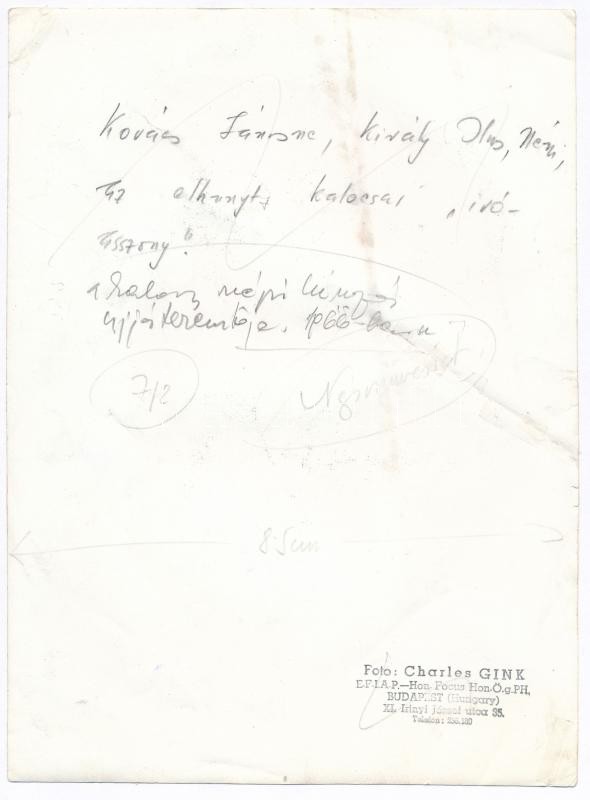 Kovács Jánosne, Király Ilus, néni,
az elhunyt, kalocsai "író-
asszony."
a kalocsai népi hímzés
ujjáteremtője. 1966-ban
7/2
Népművészet
8.5cm
Foto: Charles GINK
E.F.I.A.P.—Hon. Focus Hon.Ö.g.PH,
BUDAPEST (Hungary)
XI. Irinyi józsef utca 35.
Telefon: 256.180